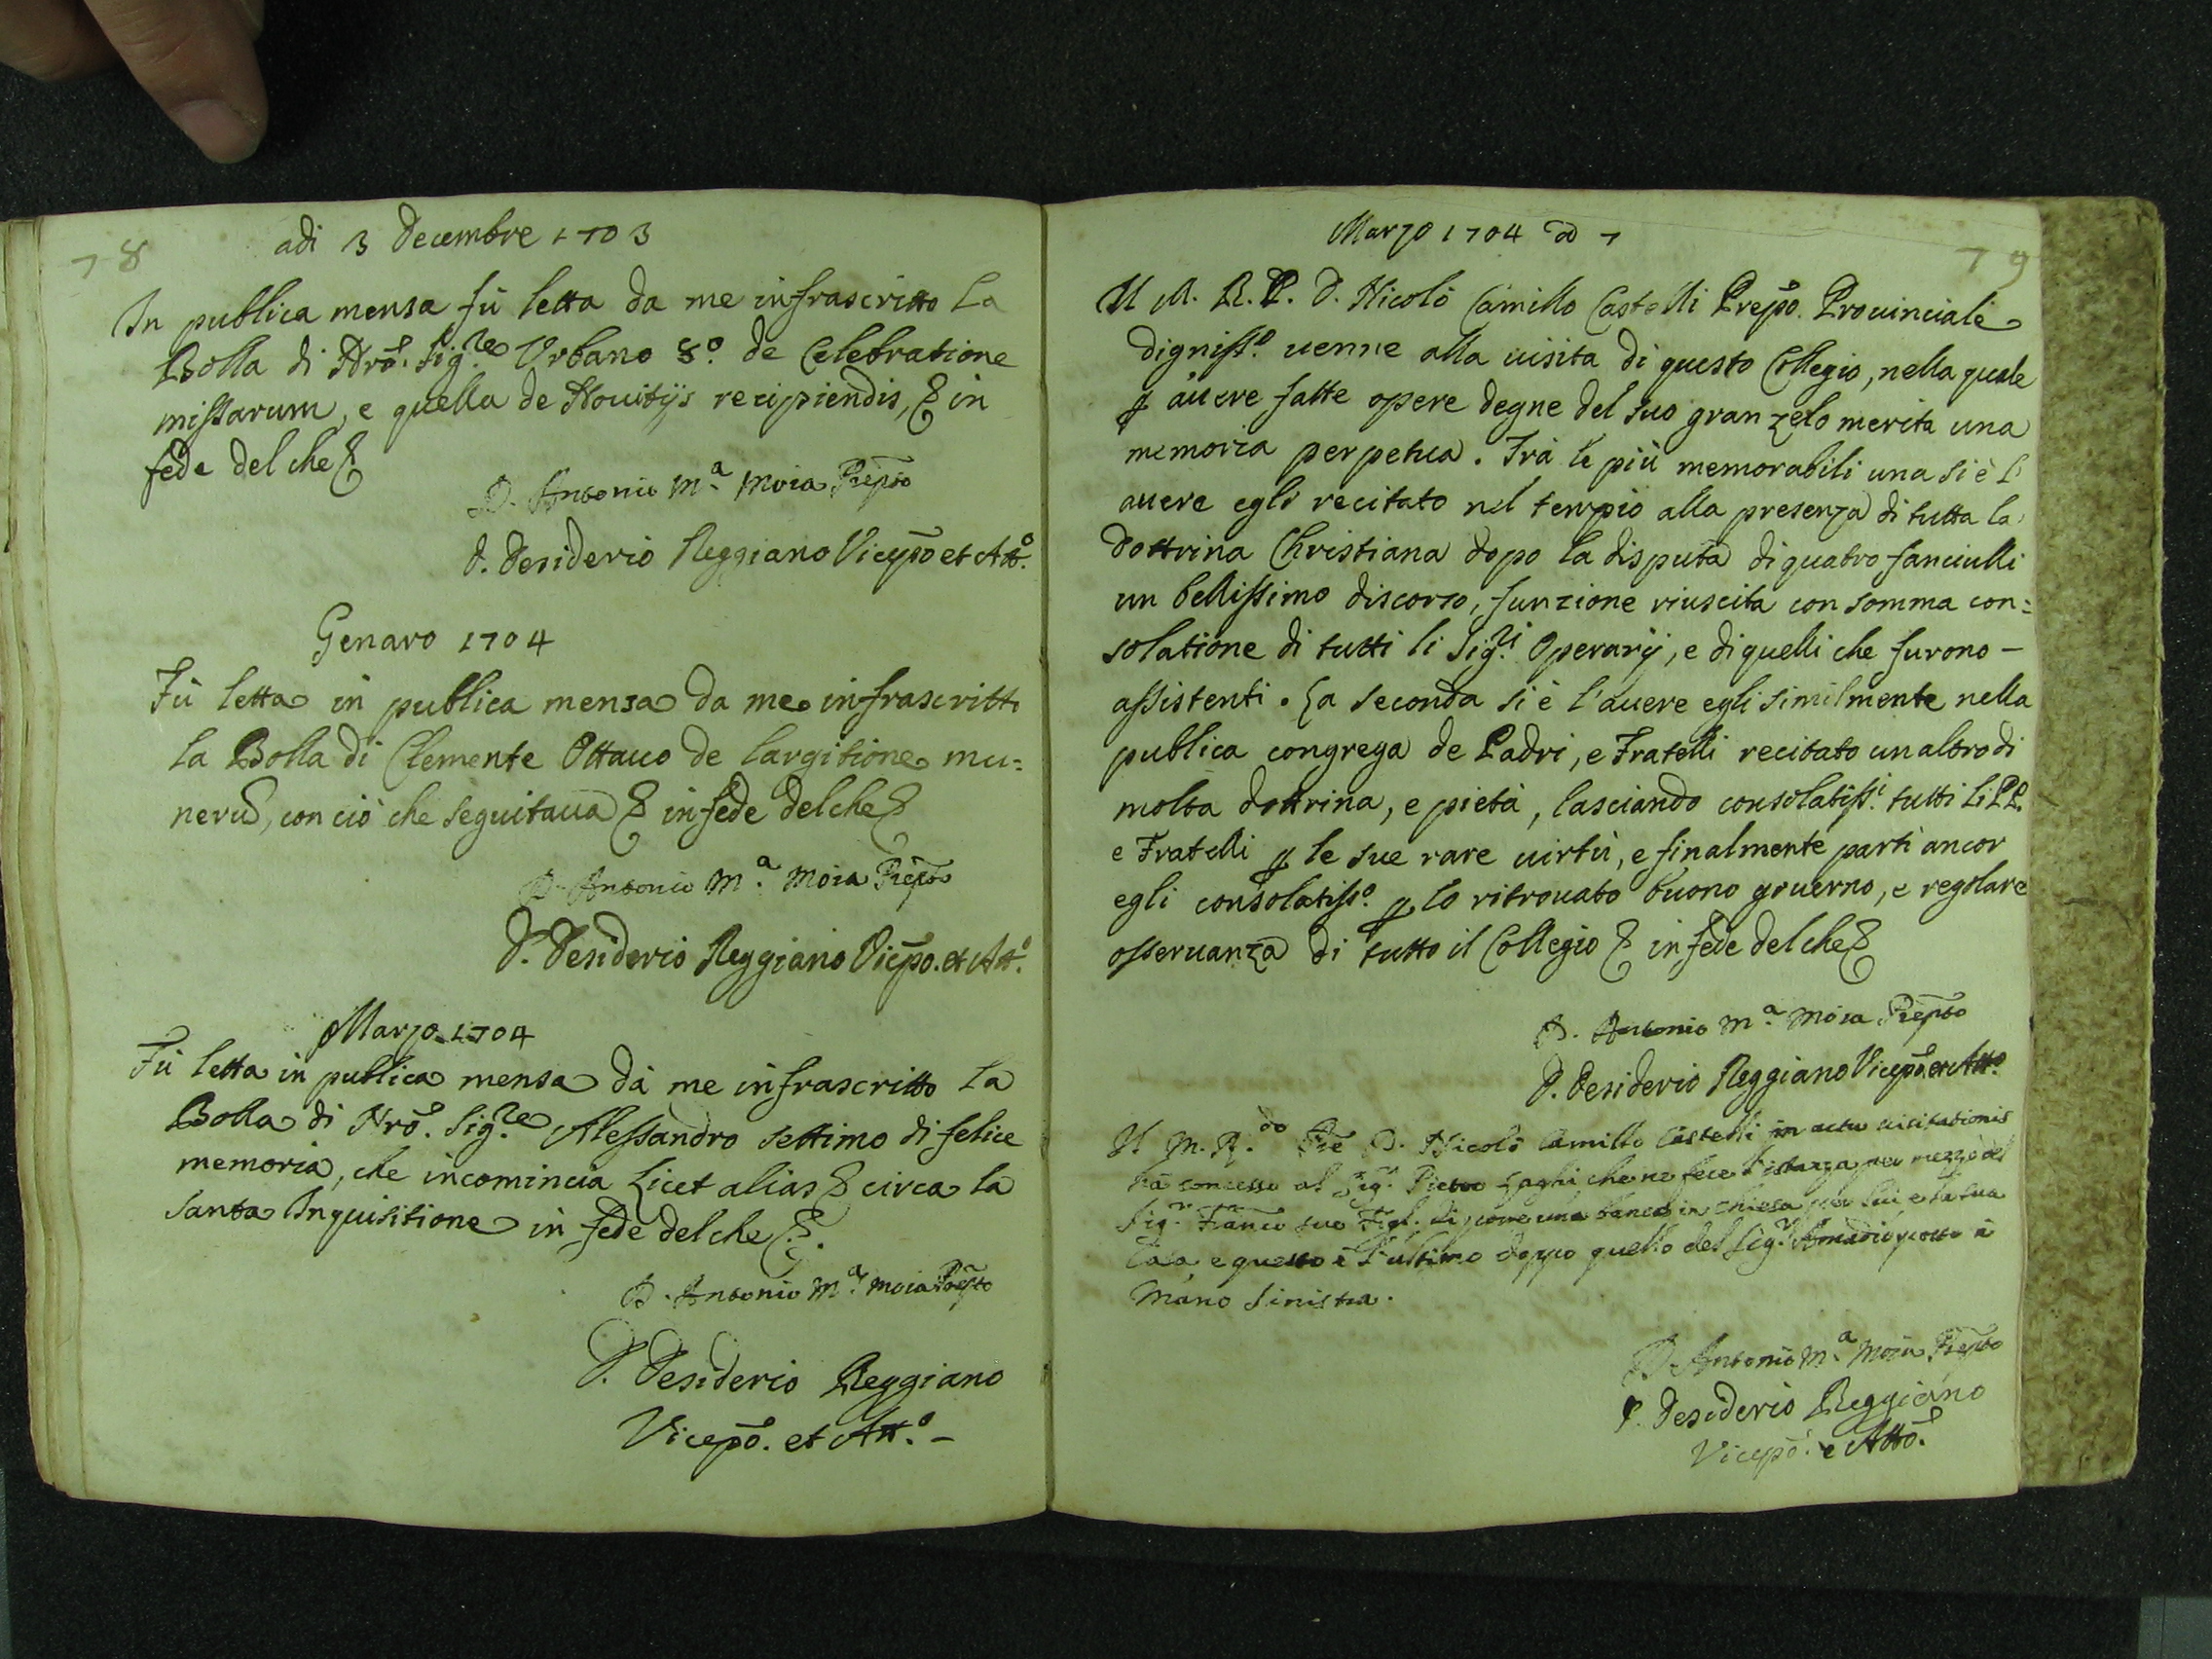 78
adi 3 Decembre 1703
In publica mensa fù letta da me infrascritto la
Bolla di Nrõ. Sig.re Vrbano 8.o de Celebratione
missarum, e quella de Nouitijs recipiendis, & in
fede del che &
D. Antonio M.a Moia Prepto
D. Desiderio Reggiano Vicepto et Att.o
Genaro 1704
Fù letta in publica mensa da me infrascritto
la Bolla di Clemente Ottauo de largitione mu=
nerū, con ciò che seguitaua & in fede del che &
D. Antonio M.a Moia Prepto
D. Desiderio Reggiano Vicepo. et Att.o
Marzo 1704
Fù letta in publica mensa da me infrascritto la
Bolla di Nrõ. Sig.re Alessandro settimo di felice
memoria, che incomincia Licet alias & circa la
Santa Inquisitione in fede del che &.
D. Antonio M.a Moia Prepto
D. Desiderio Reggiano
Vicepo. et Att.o -
79
Marzo 1704 ad 7
Il M. R. P. D. Nicolò Camillo Castelli Prepo. Prouinciale
digniss.o uenne alla uisita di questo Collegio, nella quale
ꝑ auere fatte opere degne del suo gran zelo merita una
memoria perpetua. Frà le più memorabili una si è l'
auere egli recitato nel tempio alla presenza di tutta la
Dottrina Christiana dopo la disputa di quatro fanciulli
un bellissimo discorso, funzione riuscita con somma con=
solatione di tutti li Sig.ri Operarij, e di quelli che furono -
assistenti. La seconda si è l'auere egli similmente nella
publica congrega de Padri, e Fratelli recitato un altro di
molta dottrina, e pietà, lasciando consolatiss.i tutti li PP.
e Fratelli ꝑ le sue rare uirtù, e finalmente partì ancor
egli consolatiss.o ꝑ lo ritrouato buono gouerno, e regolare
osseruanza di tutto il Collegio & in fede del che &
D. Antonio M.a Moia Prepto
D. Desiderio Reggiano Vicepo. et Att.o
Il M. R.do Pre D. Nicolò Camillo Castelli in actu uisitationis
hà concesso al Sig.r Pietro Faghi che ne fece l'istanza per mezzo del
Sig.r Franco suo Figl. di porre una banca in chiesa per lui e la sua
Casa e questo è l'ultimo doppo quello del Sig.r Amadio posto à
Mano Sinistra.
D. Antonio M.a Moia Prepto
D. Desiderio Reggiano
Vicepo. e Atto.